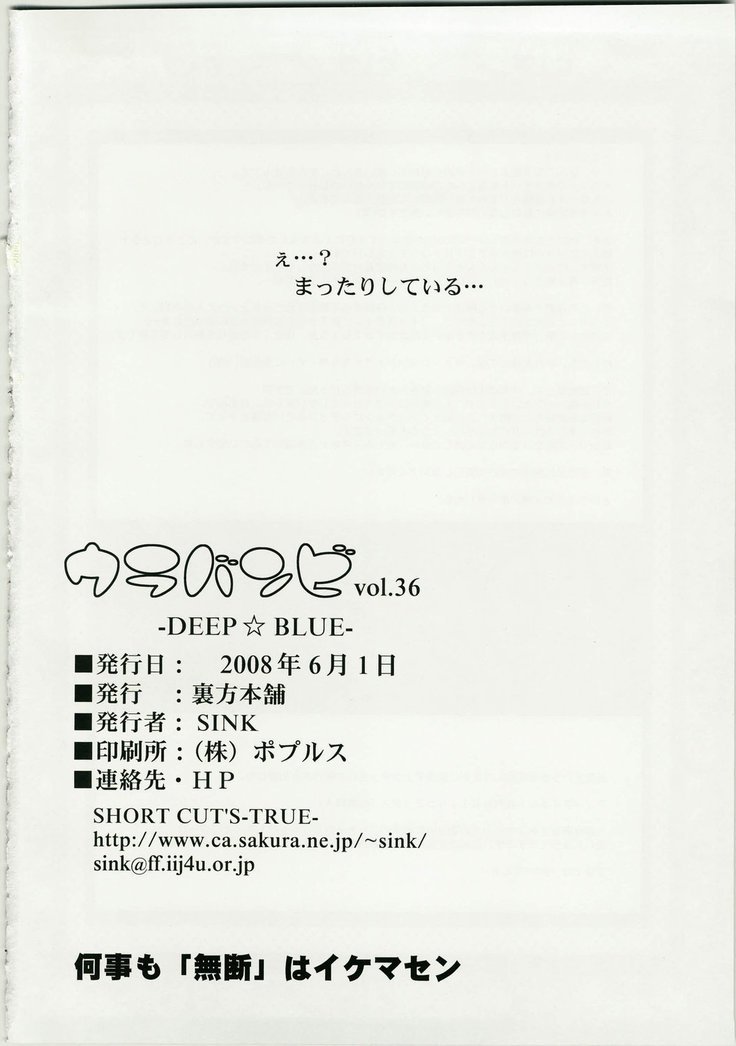 ぇ…？
まったりしている…
ウラバンビ vol.36
-DEEP☆BLUE-
■発行日： 2008年6月1日
■発行　：裏方本舗
■発行者：SINK
■印刷所：（株）ポプルス
■連絡先・ＨＰ
SHORT CUT'S-TRUE-
http://www.ca.sakura.ne.jp/~sink/
sink@ff.iij4u.or.jp
何事も「無断」はイケマセン